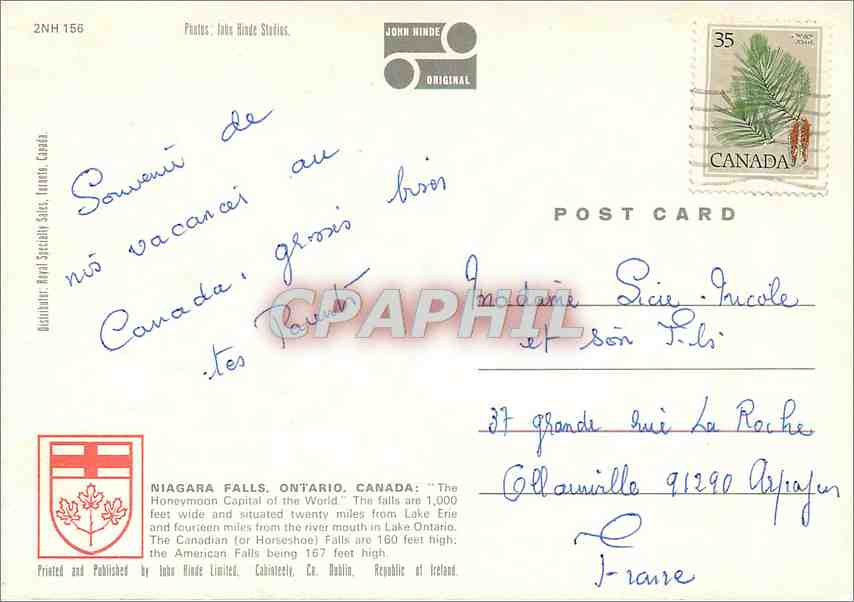 2NH 156
Photos: John Hinde Studios.
JOHN HINDE
ORIGINAL
35
CANADA
Distributor: Royal Specialty Sales, Toronto, Canada.
POST CARD
Souvenir de
nos vacances au
Canada, grosses bises
tes Parents
CPAPHIL
Madame Nicole
et son Fils
37 grande rue La Roche
Ollainville 91290 Arpajon
France
NIAGARA FALLS, ONTARIO, CANADA: "The
Honeymoon Capital of the World." The falls are 1,000
feet wide and situated twenty miles from Lake Erie
and fourteen miles from the river mouth in Lake Ontario.
The Canadian (or Horseshoe) Falls are 160 feet high;
the American Falls being 167 feet high.
Printed and Published by John Hinde Limited, Cabinteely, Co. Dublin, Republic of Ireland.